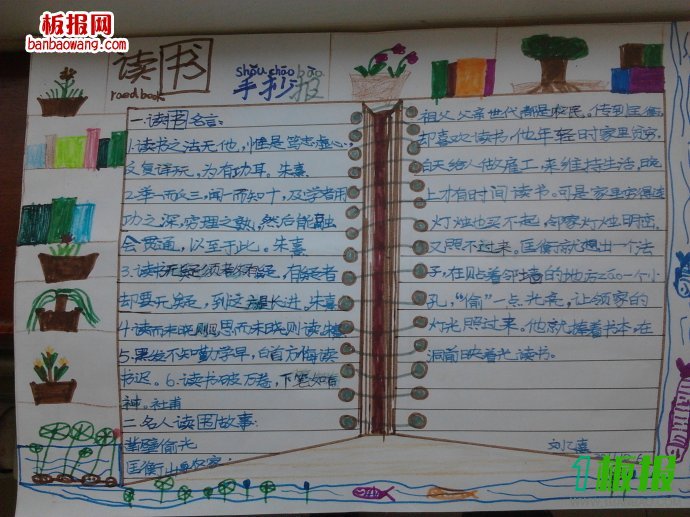 板报网
banbaowang.com
读书
read book
shǒu chāo bào
手抄报
一.读书名言:
1.读书之法无他,惟是笃志虚心,
反复详玩,为有功耳。朱熹
2.举一而反三,闻一而知十,及学者用
功之深,穷理之熟,然后能融
会贯通,以至于此。朱熹
3.读书无疑须教有疑,有疑者
却要无疑,到这里方是长进。朱熹
4.读而未晓则思,思而未晓则读。朱熹
5.黑发不知勤学早,白首方悔读
书迟。6.读书破万卷,下笔如有
神。杜甫
二.名人读书故事:
凿壁偷光
匡衡
祖父、父亲世代都是农民。传到匡衡,
却喜欢读书,他年轻时家里贫穷,
白天给人做雇工,来维持生活,晚
上才有时间读书。可是家里穷得连
灯烛也买不起,邻家灯烛明亮,
又照不过来。匡衡就想出一个法
子,在贴着邻墙的地方一个小
孔,“偷”一点光亮,让领家的
灯光照过来。他就捧着书本,在
洞前映着光读书。
板报